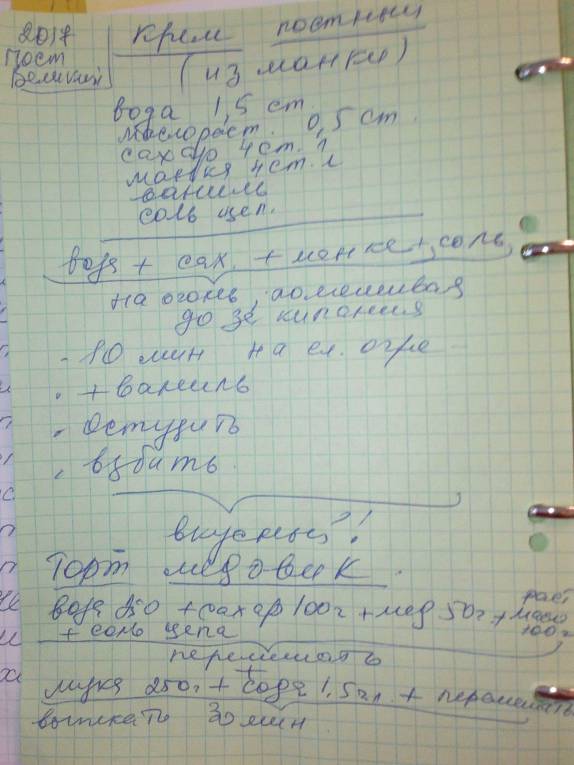 2017
Пост
Великий
Крем постный
(из манки)
вода 1,5 ст.
масло раст. 0,5 ст.
сахар 4 ст. л
манка 4 ст. л
ваниль
соль щеп.
вода + сах. + манке + соль
на огонь, помешивая
до закипания
- 10 мин на сл. огне
. + ваниль
. остудить
. взбить
вкусный!
Торт медовик.
вода + сахар 100г + мед 50г + раст масло 100г
+ соль щепа
перемешать
+
мука 250г + сода 1,5 ч л. + перемешать
выпекать 30 мин